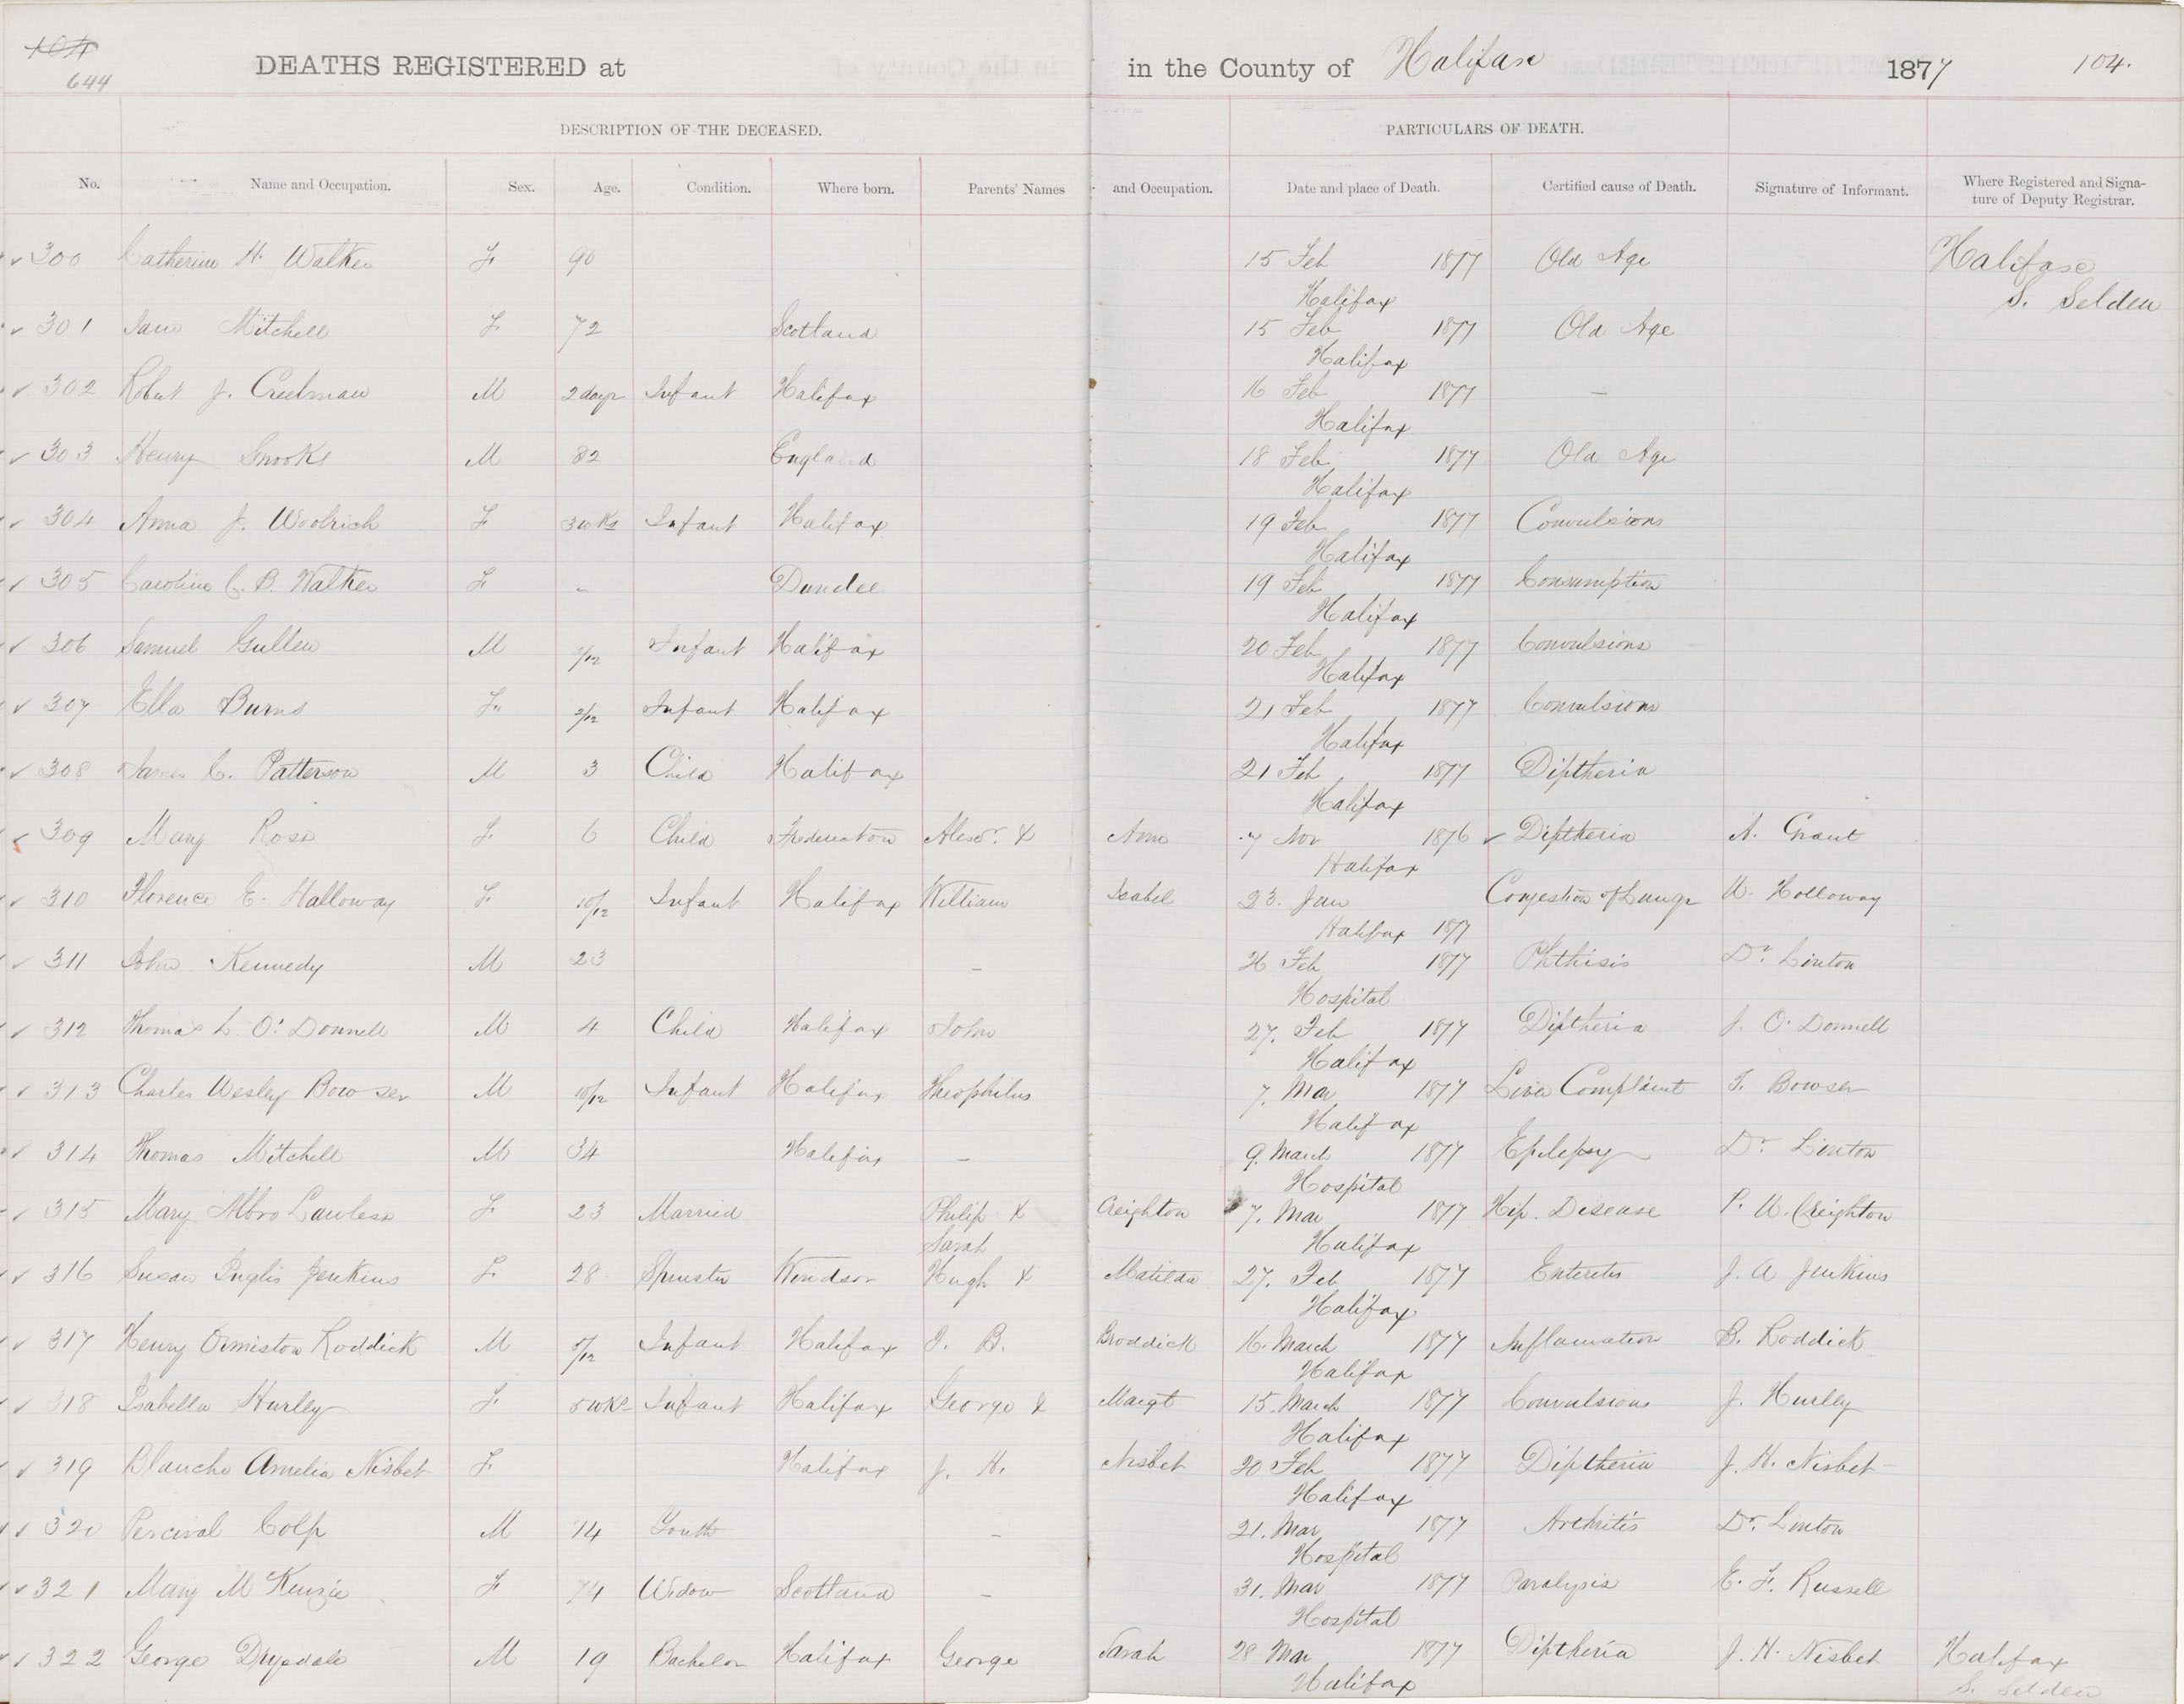 104 644
DEATHS REGISTERED at in the County of Halifax 1877 104.
DESCRIPTION OF THE DECEASED. PARTICULARS OF DEATH.
No. Name and Occupation. Sex. Age. Condition. Where born. Parents' Names and Occupation. Date and place of Death. Certified cause of Death. Signature of Informant. Where Registered and Signature of Deputy Registrar.
300 Catherine H. Walker F. 90 15 Feb 1877 Old Age Halifax
Halifax S. Selden
301 Jane Mitchell F. 72 Scotland 15 Feb 1877 Old Age
Halifax
302 Robert J. Creelman M 2 days Infant Halifax 16 Feb 1877 —
Halifax
303 Henry Snooks M 82 England 18 Feb 1877 Old Age
Halifax
304 Anna J. Woolrich F 3 wks Infant Halifax 19 Feb 1877 Convulsions
Halifax
305 Caroline C. B. Walker F. - Dundee 19 Feb 1877 Consumption
Halifax
306 Samuel Gullen M /12 Infant Halifax 20 Feb 1877 Convulsions
Halifax
307 Ella Burns F. 2/12 Infant Halifax 21 Feb 1877 Convulsions
Halifax
308 James C. Patterson M 3 Child Halifax 21 Feb 1877 Diptheria
Halifax
309 Mary Ross F. 6 Child Fredericton Alexr. & Ann 7 Nov 1876 Diptheria A. Grant
Halifax
310 Florence E. Halloway F 10/12 Infant Halifax William Isabel 23. Jan Congestion of Lungs W. Holloway
Halifax 1877
311 John Kennedy M 23 — 26 Feb 1877 Phthisis Dr. Linton
Hospital
312 Thomas L. O'Donnell M 4 Child Halifax John 27. Feb 1877 Diptheria J. O'Donnell
Halifax
313 Charles Wesley Bowser M 10/12 Infant Halifax Theophilus 7. Mar 1877 Liver Complaint T. Bowser
Halifax
314 Thomas Mitchell M 34 Halifax — 9. March 1877 Epilepsy Dr. Linton
Hospital
315 Mary Lawless F. 23 Married Philip & Creighton 7. Mar 1877 Hip. Disease P. W. Creighton
Sarah Halifax
316 Susan Inglis Jenkins F. 28 Spinster Windsor Hugh & Matilda 27. Feb 1877 Enteritis J. A Jenkins
Halifax
317 Henry Ormiston Roddick M /12 Infant Halifax J. B. Broddick 16. March 1877 Inflamation B. Roddick
Halifax
318 Isabella Hurley F. 5 wks Infant Halifax George & Margt 15. March 1877 Convulsions J. Hurley
Halifax
319 Blanche Amelia Nisbet F. Halifax J. H. Nisbet 20 Feb 1877 Diptheria J. H. Nisbet
Halifax
320 Percival Colp M 14 Youth — 21. Mar 1877 Arthritis Dr. Linton
Hospital
321 Mary McKenzie F 74 Widow Scotland — 31. Mar 1877 Paralysis E. F. Russell
Hospital
322 George Drysdale M 19 Bachelor Halifax George Sarah 28 Mar 1877 Diptheria J. H. Nisbet Halifax
Halifax S. Selden